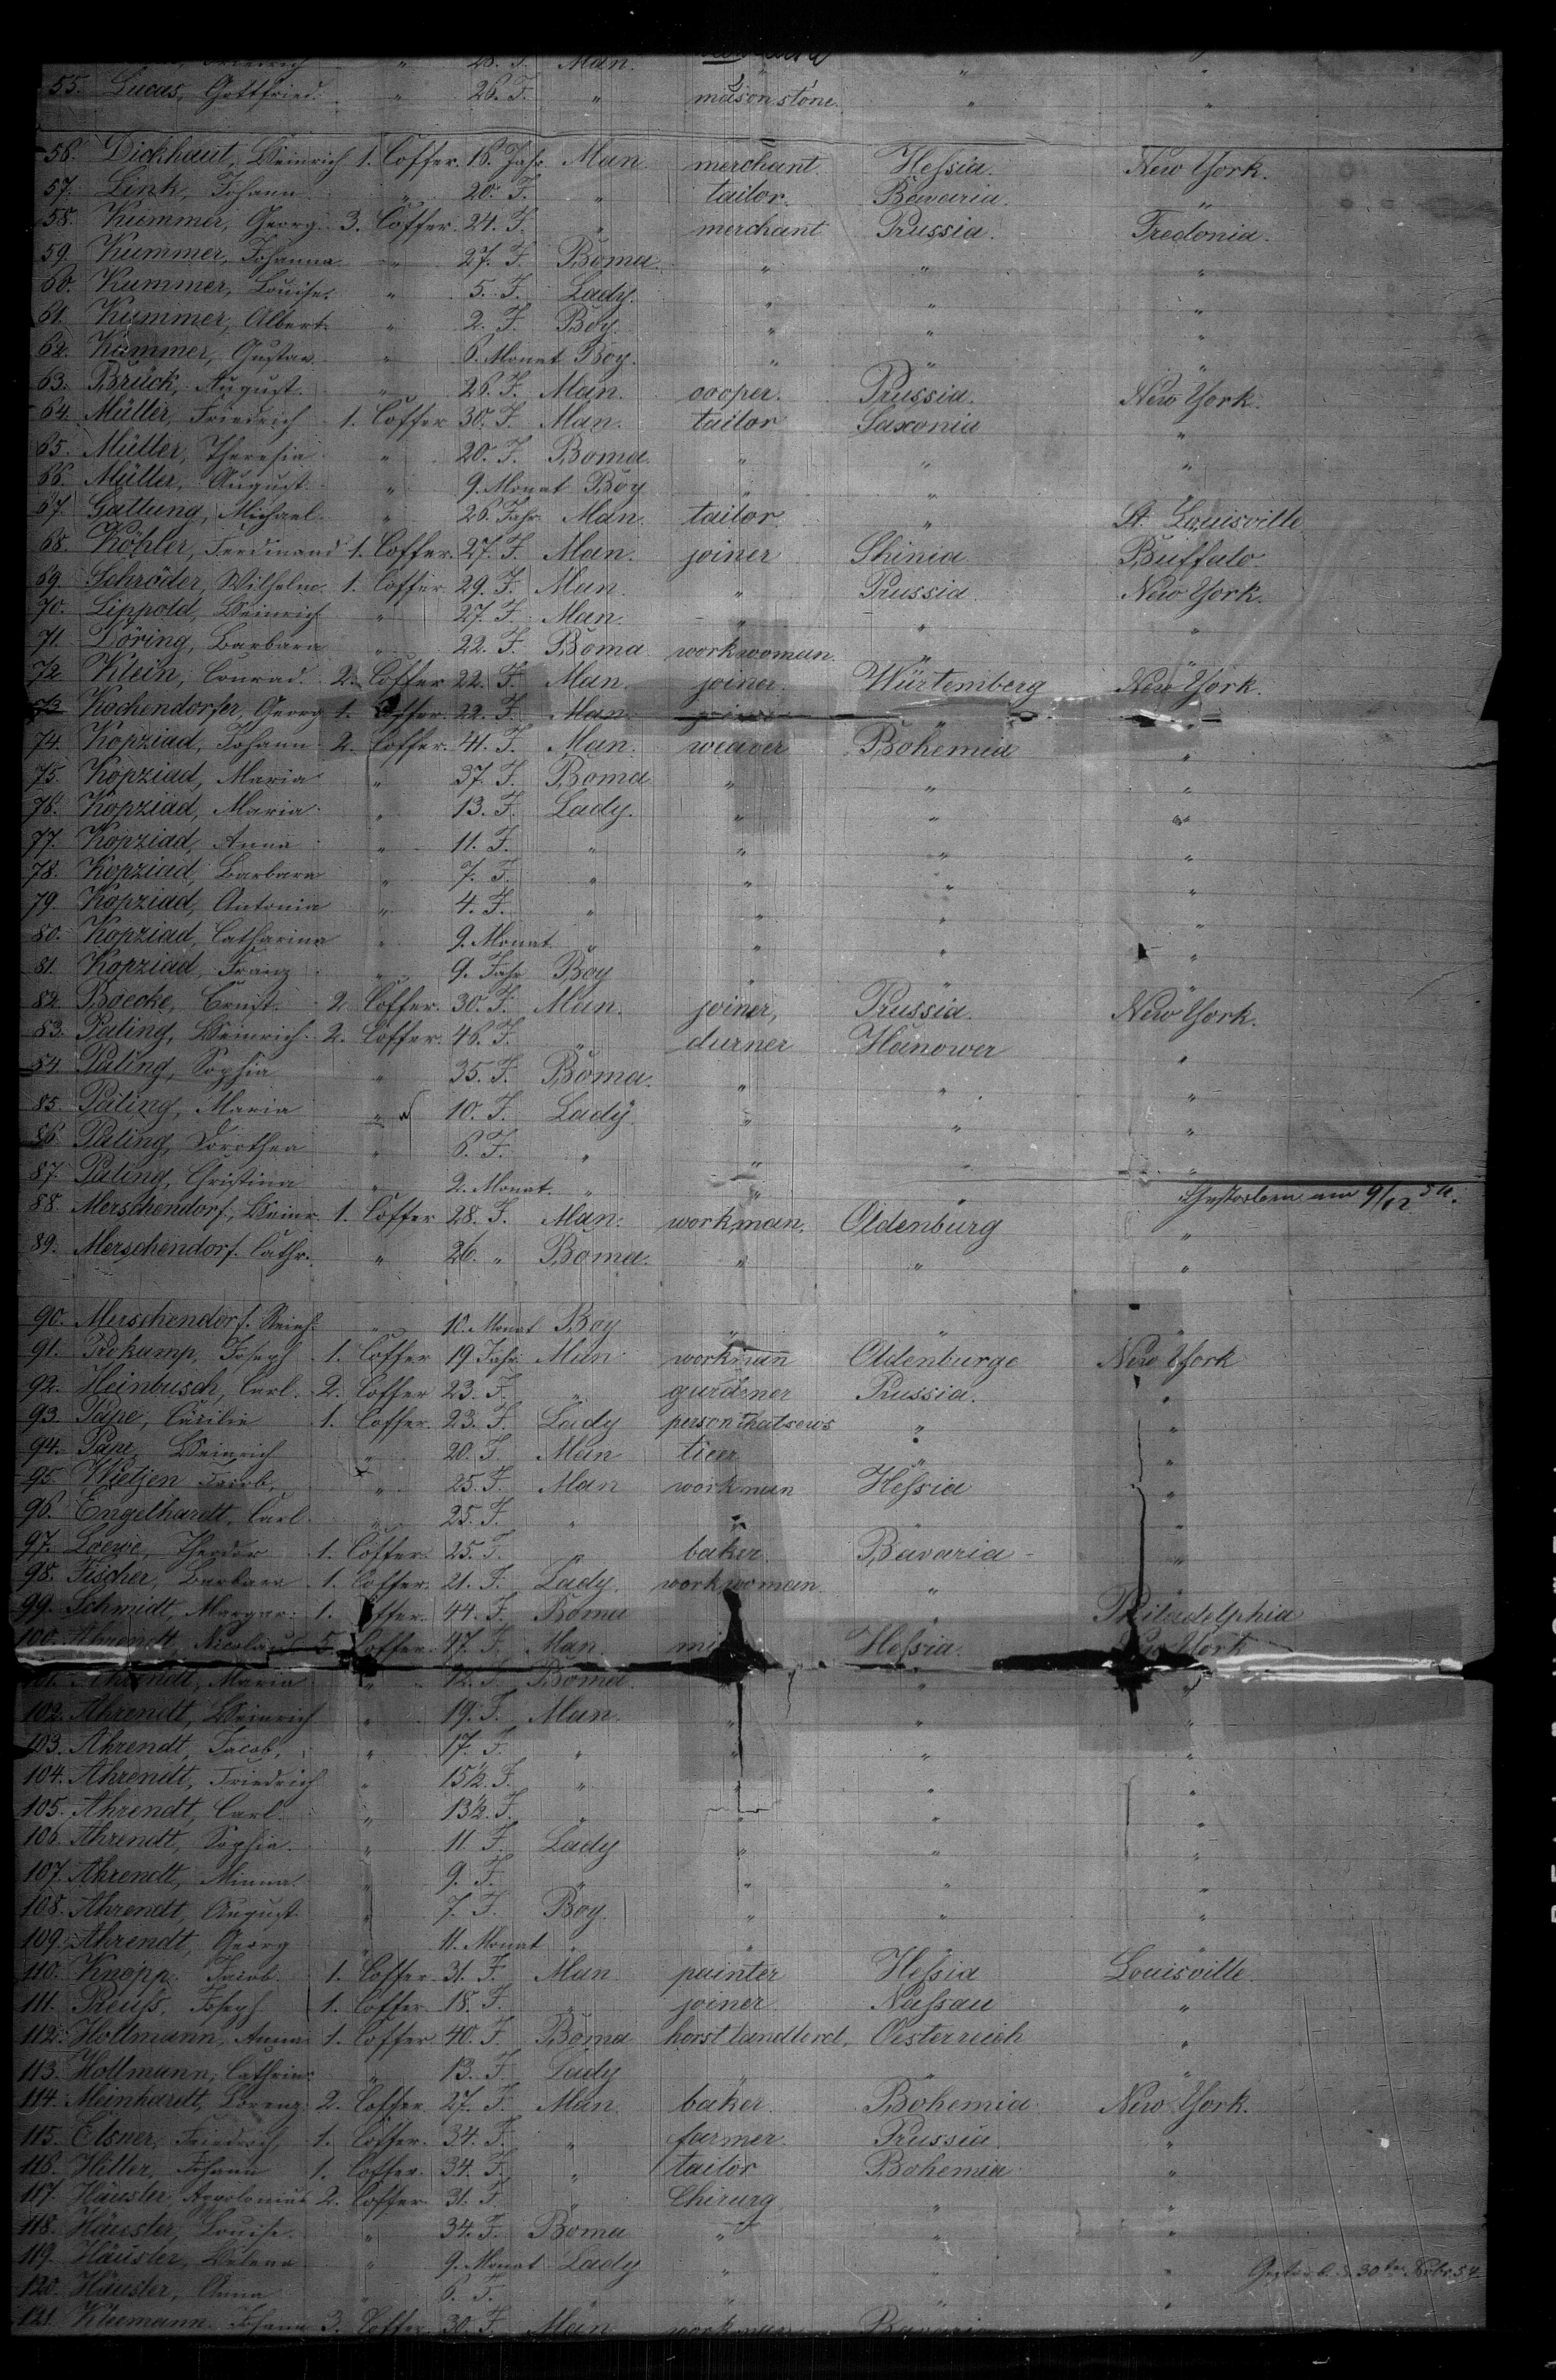 28. J. Man.
55. Lucas, Gottfried. " 26. J. " mason stone. " "
56. Dickhaut, Heinrich 1. Coffer. 18. Jahr Man. merchant. Hessia. New York.
57. Link, Johann " 20. J. " tailor. Bavaria. "
58. Kummer, Georg 3. Coffer. 24. J. " merchant Prussia. Fredonia.
59. Kummer, Johanna " 27. J. Boma. " " "
60. Kummer, Louise. " 5. J. Lady. " " "
61. Kummer, Albert. " 2. J. Boy. " " "
62. Kummer, Gustav. " 6. Monat Boy. " " "
63. Brück, August. " 26. J. Man. cooper. Prussia. New York.
64. Müller, Friedrich 1. Coffer 30. J. Man. tailor Saxonia "
65. Müller, Theresia " 20. J. Boma. " " "
66. Müller, August. " 9. Monat Boy " " "
67. Gattung, Michael. " 26. Jahr Man. tailor. " St. Louisville
68. Köhler, Ferdinand 1. Coffer. 27. J. Man. joiner Shinia Buffalo.
69. Schröder, Wilhelm 1. Coffer 29. J. Man. " Prussia. New York.
70. Lippold, Heinrich " 27. J. Man. " " "
71. Döring, Barbara " 22. J. Boma workwoman. " "
72. Klein, Conrad. 2. Coffer 22. J. Man. joiner. Würtemberg New York.
73. Kochendorfer, Georg 1. Coffer. 22. J. Man. "
74. Kopziad, Johann 2. Coffer. 41. J. Man. weaver Bohemia "
75. Kopziad, Maria " 37. J. Boma " " "
76. Kopziad, Maria " 13. J. Lady. " " "
77. Kopziad, Anna " 11. J. " " " "
78. Kopziad, Barbara " 7. J. " " " "
79. Kopziad, Antonia " 4. J. " " " "
80. Kopziad, Catharina " 9. Monat. " " " "
81. Kopziad, Franz " 9. Jahr Boy " " "
82. Boecke, Ernst. 2. Coffer. 30. J. Man. joiner, Prussia. New York.
83. Paling, Heinrich. 2. Coffer. 46. J. " durner Hanower "
84. Paling, Sophia " 35. J. Boma. " " "
85. Paling, Maria " 10. J. Lady. " " "
86. Paling, Dorothea " 6. J. " " " "
87. Paling, Christina " 2. Monat. " " " Gestorben am 9/12 54.
88. Merschendorf, Heinr. 1. Coffer 28. J. Man. workman. Oldenburg "
89. Merschendorf. Cathr. " 26. " Boma. " " "
90. Merschendorf. " 10. Monat Boy " " "
91. Rokamp, Joseph 1. Coffer 19 Jahr Man workman Oldenburge New York
92. Heinbusch, Carl. 2. Coffer 23. J. " gardener Prussia. "
93. Pape, Cäcilie 1. Coffer. 23. J. Lady person that sews " "
94. Pape, Heinrich " 20. J. Man " "
95. Wietjen Jacob, " 25. J. Man workman Hessia "
96. Engelhardt, Carl. " 25. J. " " " "
97. Loewe, Theodor 1. Coffer 25. J. " baker. Bavaria "
98. Fischer, Barbara 1. Coffer. 21. J. Lady. workwoman. " "
99. Schmidt, Margar: 1. Coffer. 44. J. Boma " Philadelphia
100. Ahrendt, Nicolaus 5. Coffer. 47. J. Man. Hessia. New York
101. Ahrendt, Maria " 42. J. Boma. " "
102. Ahrendt, Heinrich " 19. J. Man. " " "
103. Ahrendt, Jacob, " 17. J. " " " "
104. Ahrendt, Friedrich " 15½. J. " " " "
105. Ahrendt, Carl. " 13½. J. " " " "
106. Ahrendt, Sophia. " 11. J. Lady " " "
107. Ahrendt, Minna. " 9. J. " " " "
108. Ahrendt, August. " 7. J. Boy. " " "
109. Ahrendt, Georg " 11. Monat " " " "
110. Knopp. Jacob. 1. Coffer. 31. J. Man painter Hessia Louisville.
111. Reuss, Joseph 1. Coffer. 18. J. " joiner. Nassau "
112. Hollmann, Anna 1. Coffer. 40. J. Boma horst landlord. Oesterreich "
113. Hollmann, Cathrin: " 13. J. Lady " " "
114. Meinhardt, Lorenz 2. Coffer 27. J. Man. baker. Bohemia New York.
115. Elsner, Friedrich, 1. Coffer. 34. J. " farmer. Prussia. "
116. Hiller, Johann 1. Coffer. 34. J. " tailor Bohemia "
117. Häusler, Appolonius 2. Coffer. 31. J. " Chirurg " "
118. Häusler, Louise. " 34. J. Boma " " "
119. Häusler, Helena " 9. Monat Lady " " "
120. Häusler, Anna " 6. J. " " " "
121. Kliemann. Johann 3. Coffer. 30. J. Man workman Bavaria